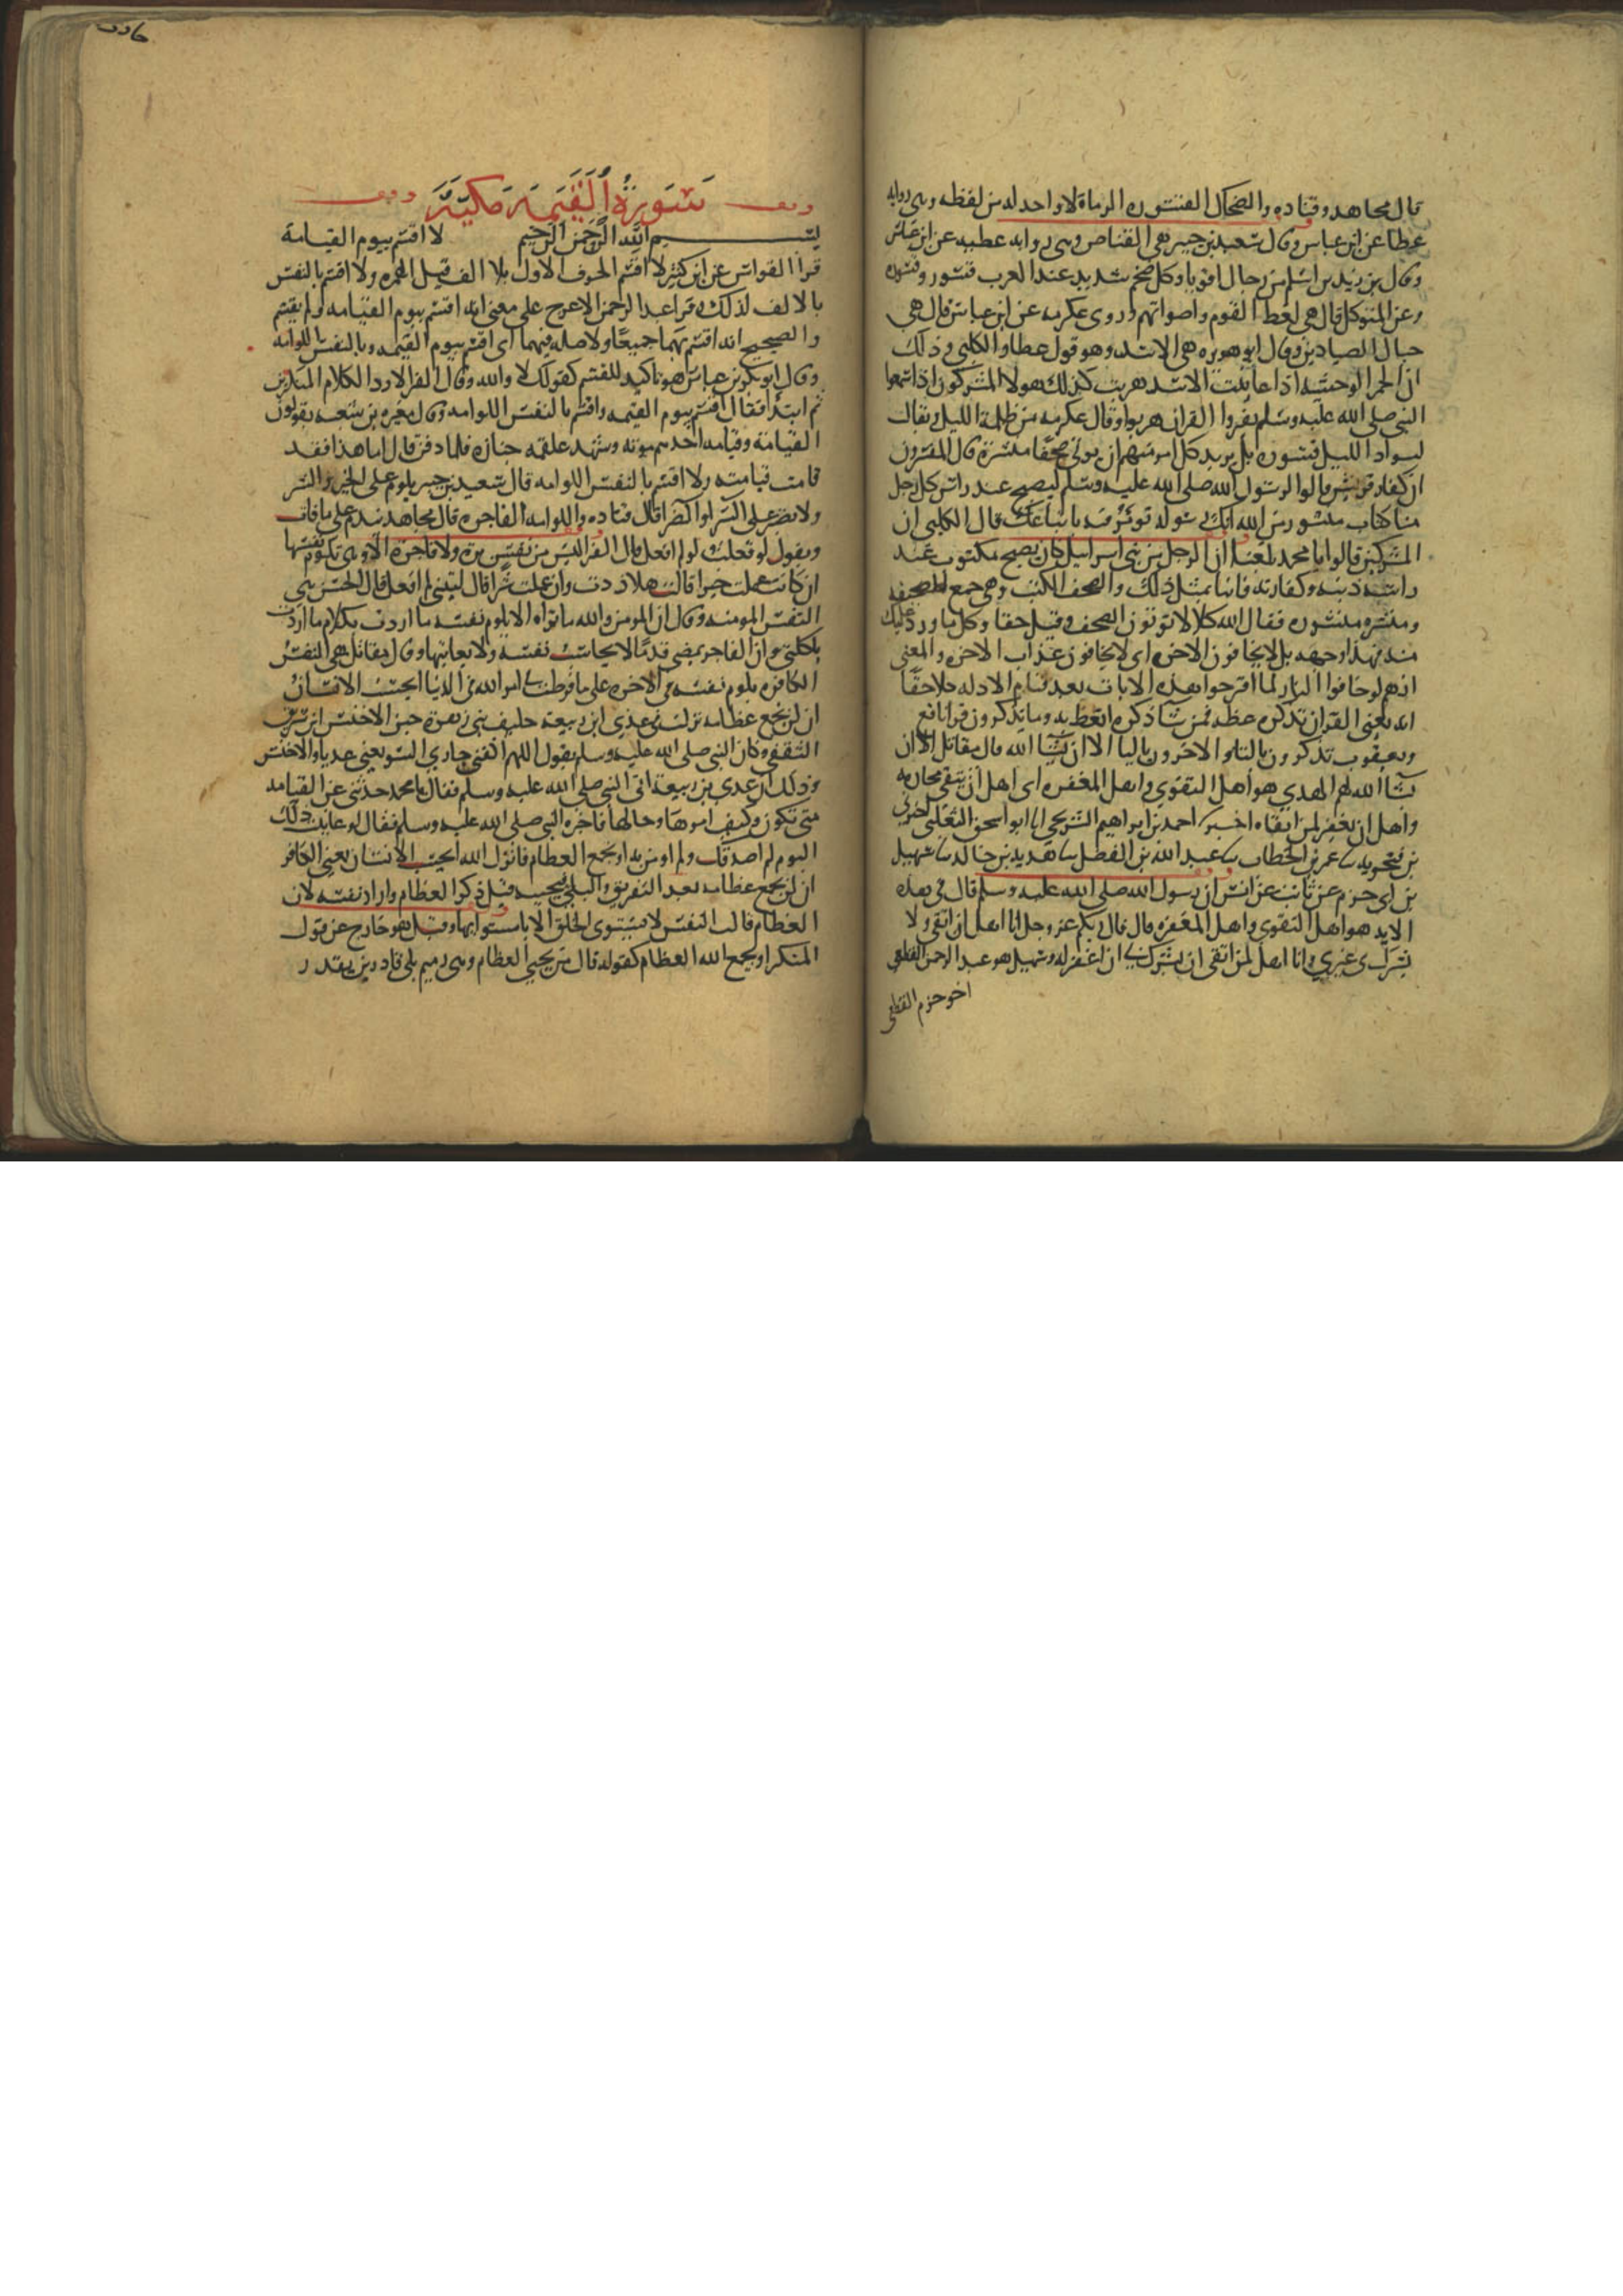 قال مجاهد وقتاده والضحاك القسورة الرماة لا واحد له من لفظه وهي روايه
عطا عن ابن عباس وقال سعيد بن جبير هي القناص وهي روايه عطيه عن ابن عباس
وقال بن زيد بن اسلم من رجال اقويا وكل ضخم شديد عند العرب قسور وقسوره
وعن المتوكل قال هي لغط القوم واصواتهم وروى عكرمه عن ابن عباس قال هي
حبال الصيادين وقال ابو هريره هي الاسد وهو قول عطا والكلبي وذلك
ان الحمر الوحشيه اذا عاينت الاسد هربت كذلك هولا المشركون اذا سمعوا
النبي صلى الله عليه وسلم يقروا القران هربوا وقال عكرمه من ظلمة الليل ويقال
لسواد الليل قسوره بل يريد كل امرئ منهم ان يوتى صحفا منشرة قال المفسرون
ان كفار قريش قالوا لرسول الله صلى الله عليه وسلم ليصبح عند راس كل رجل
منا كتاب منشور من الله انك لرسوله نومر فيه باتباعك قال الكلبي ان
المشركين قالوا يا محمد بلغنا ان الرجل من بني اسرايل كان يصبح مكتوب عند
راسه ذنبه وكفارته فاتنا بمثل ذلك والصحف الكتب وهي جمع الصحيفه
ومنشره منشوره فقال الله كلا لا توتون الصحف وقيل حقا وكل ما ورد عليك
منه فهذا وجهه بل لا يخافون الاخره اي لا يخافون عذاب الاخره والمعنى
انهم لو خافوا النار لما اقترحوا هذه الايات بعد قيام الادله كلا حقا
انه يعني القران تذكره عظه فمن شا ذكره اتعظ به وما يذكرون قرا نافع
ويعقوب تذكرون بالتا والاخرون باليا الا ان يشا الله قال مقاتل الا ان
يشا الله لهم الهدي هو اهل التقوي واهل المغفره اي اهل ان يتقى محارمه
واهل ان يغفر لمن اتقاه اخبرنا احمد بن ابراهيم الشريحي انا ابو اسحق الثعلبي اخبرني
بن فنجويه عمر بن الخطاب عبد الله بن الفضل هدبه بن خالد سهيل
بن ابي حزم عن ثابت عن انس ان رسول الله صلى الله عليه وسلم قال في هذه
الايه هو اهل التقوى واهل المغفره قال قال ربكم عز وجل انا اهل ان اتقى ولا
يشرك بي غيري وانا اهل لمن اتقى ان يشرك بي ان اغفر له وسهيل هو عبد الرحمن القطعي
اخو حزم القطعي
سورة القيمة مكية
بسم الله الرحمن الرحيم لا اقسم بيوم القيامة
قرا القواس عن ابن كثير لاقسم الحرف الاول بلا الف قبل الهمزه ولا اقسم بالنفس
بالالف لذلك وقرا عبد الرحمن الاعرج على معنى انه اقسم بيوم القيامه ولم يقسم
والصحيح انه اقسم بهما جميعا ولا صله فيهما اي اقسم بيوم القيمه وبالنفس اللوامه
وقال ابو بكر بن عباس هو تاكيد للقسم كقولك لا والله وقال الفرا لا رد الكلام المنكرين
ثم ابتدا فقال اقسم بيوم القيمه واقسم بالنفس اللوامه وقال مغيره بن شعبه يقولون
القيامة وقيامه احدهم موته وشهد علقمه جنازه فلما دفن قال اما هذا فقد
قامت قيامته ولا اقسم بالنفس اللوامه قال سعيد بن جبير يلوم على الخير والشر
ولا يصبر على السرا والضرا قال قتاده واللوامه الفاجره قال مجاهد تندم على ما فات
ويقول لو فعلت ولو لم افعل قال الفرا ليس من نفس برة ولا فاجرة الا وهي تلوم نفسها
ان كانت عملت خيرا قالت هلا ازددت وان عملت شرا قال ليتني لم افعل قال الحسن هي
النفس المومنه وقال ان المومن والله ما تراه الا يلوم نفسه ما اردت بكلام ما اردت
باكلتي وان الفاجر يمضي قدما لا يحاسب نفسه ولا يعاتبها وقال مقاتل هي النفس
الكافره يلوم نفسه في الاخره على ما فرطت في امر الله في الدنيا ايحسب الانسان
ان لن نجمع عظامه نزلت في عدي ابن ربيعه حليف بني زهرة ختن الاخنس ابن شريق
الثقفي وكان النبي صلى الله عليه وسلم يقول اللهم اكفني جاري السو يعني عديا والاخنس
وذلك ان عدي بن ربيعة اتى النبي صلى الله عليه وسلم فقال يا محمد حدثني عن القيامه
متى تكون وكيف امرها وحالها فاخبره النبي صلى الله عليه وسلم فقال لو عاينت ذلك
اليوم لم اصدقك ولم اومن به او يجمع العظام فانزل الله ايحسب الانسان يعني الكافر
ان لن نجمع عظامه بعد التفريق والبلى فنحييه قيل ذكر العظام واراد نفسه لان
العظام قالب النفس لا يستوى الخلق الا باستوائها وقيل هو خارج عن قول
المنكر او يجمع الله العظام كقوله قال من يحيي العظام وهي رميم بلى قادرين نقدر